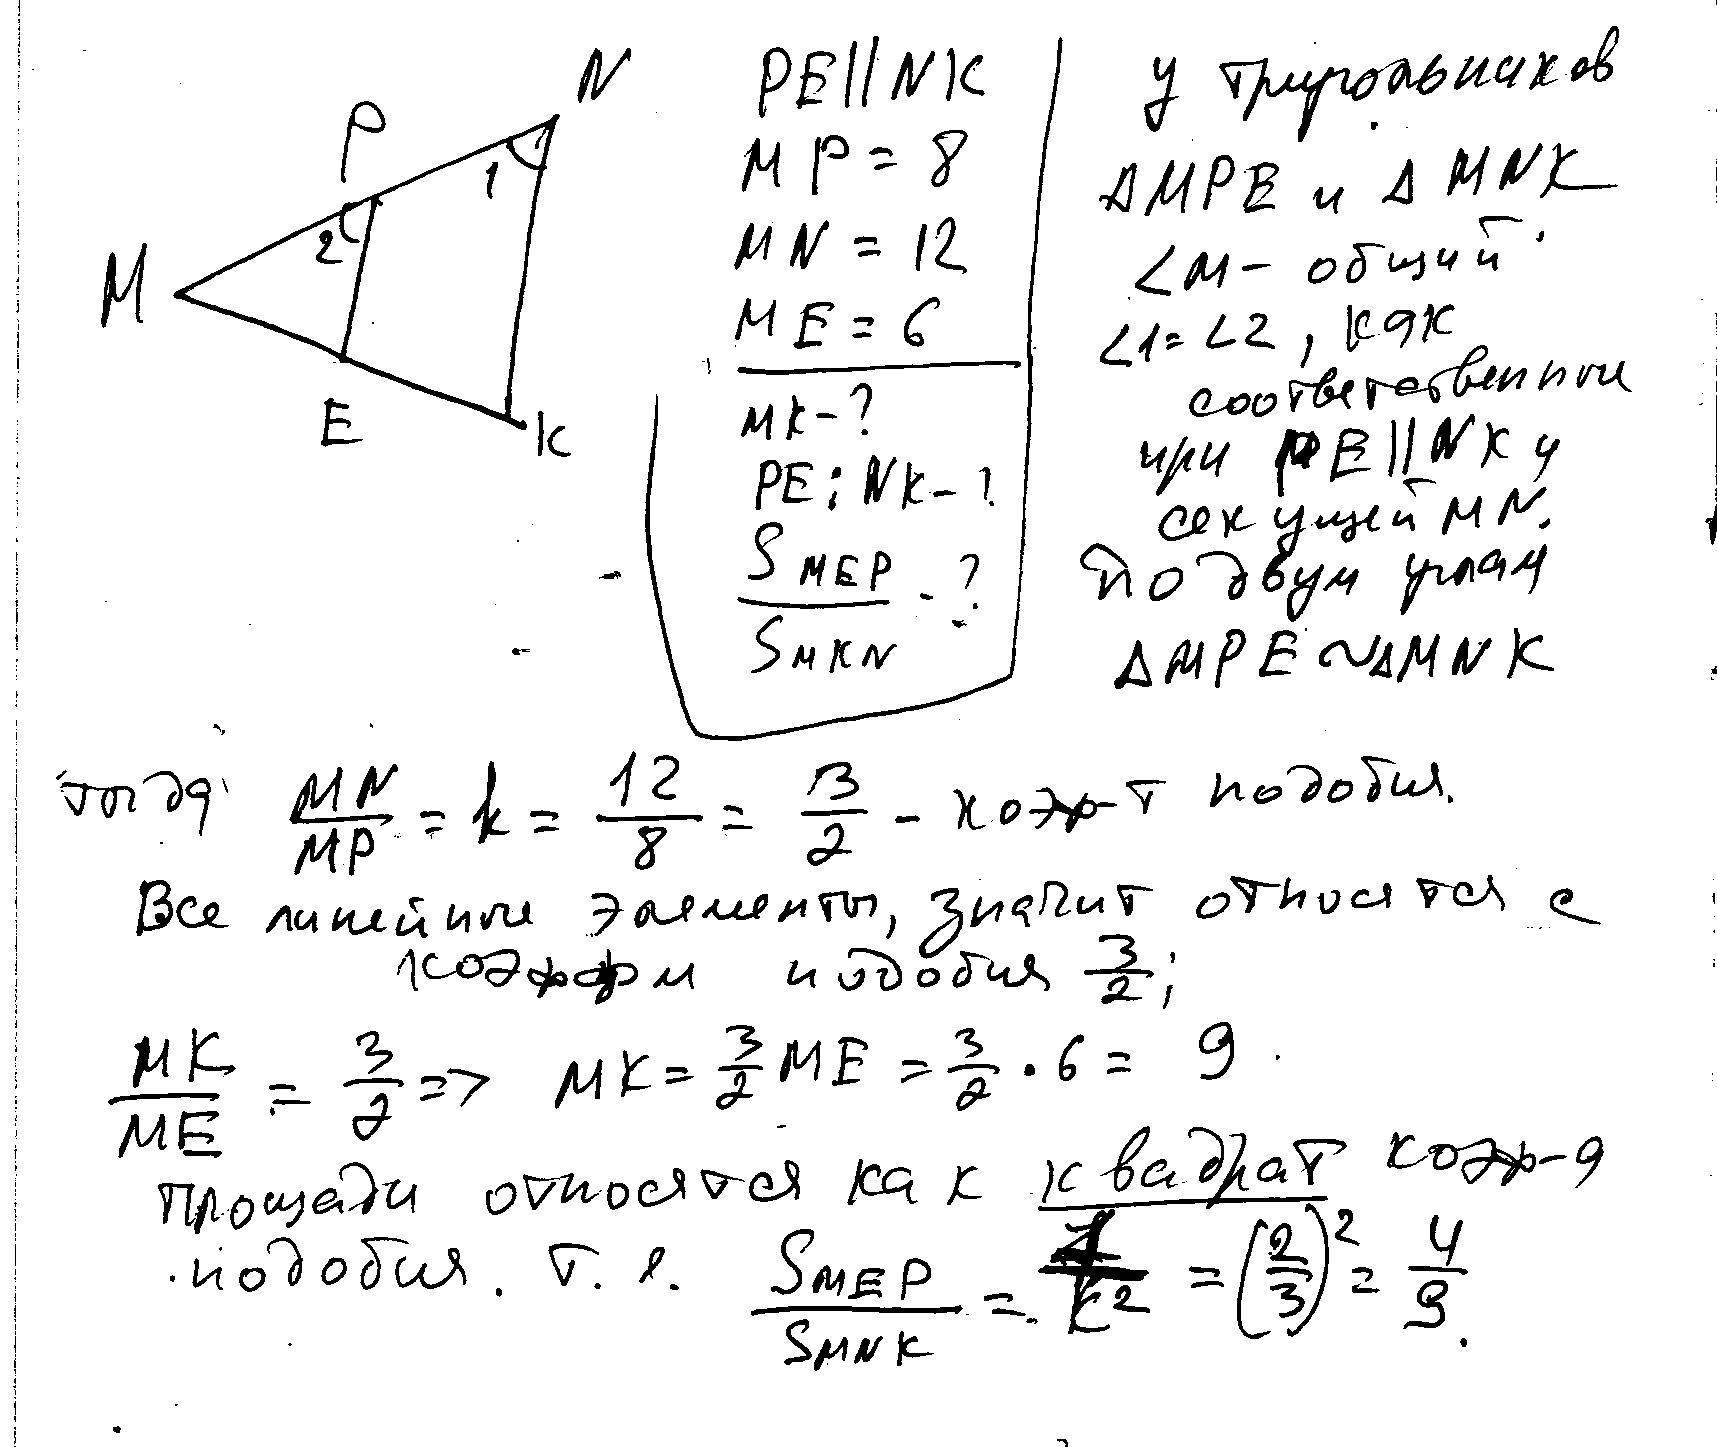 N
P
1
2
M
E
K
PE || NK
MP = 8
MN = 12
ME = 6
MK - ?
PE : NK - ?
S MEP / S MKN - ?
У треугольников
ΔMPE и ΔMNK
∠M - общий
∠1 = ∠2, как
соответственные
при PE || NK и
секущей MN.
По двум углам
ΔMPE ~ ΔMNK
тогда MN/MP = k = 12/8 = 3/2 - коэф-т подобия.
Все линейные элементы, значит относятся с
коэфф подобия 3/2;
MK/ME = 3/2 => MK = 3/2 ME = 3/2 · 6 = 9.
Площади относятся как квадрат коэф-а
подобия. т.е. S MEP / S MNK = 1/k² = (2/3)² = 4/9.